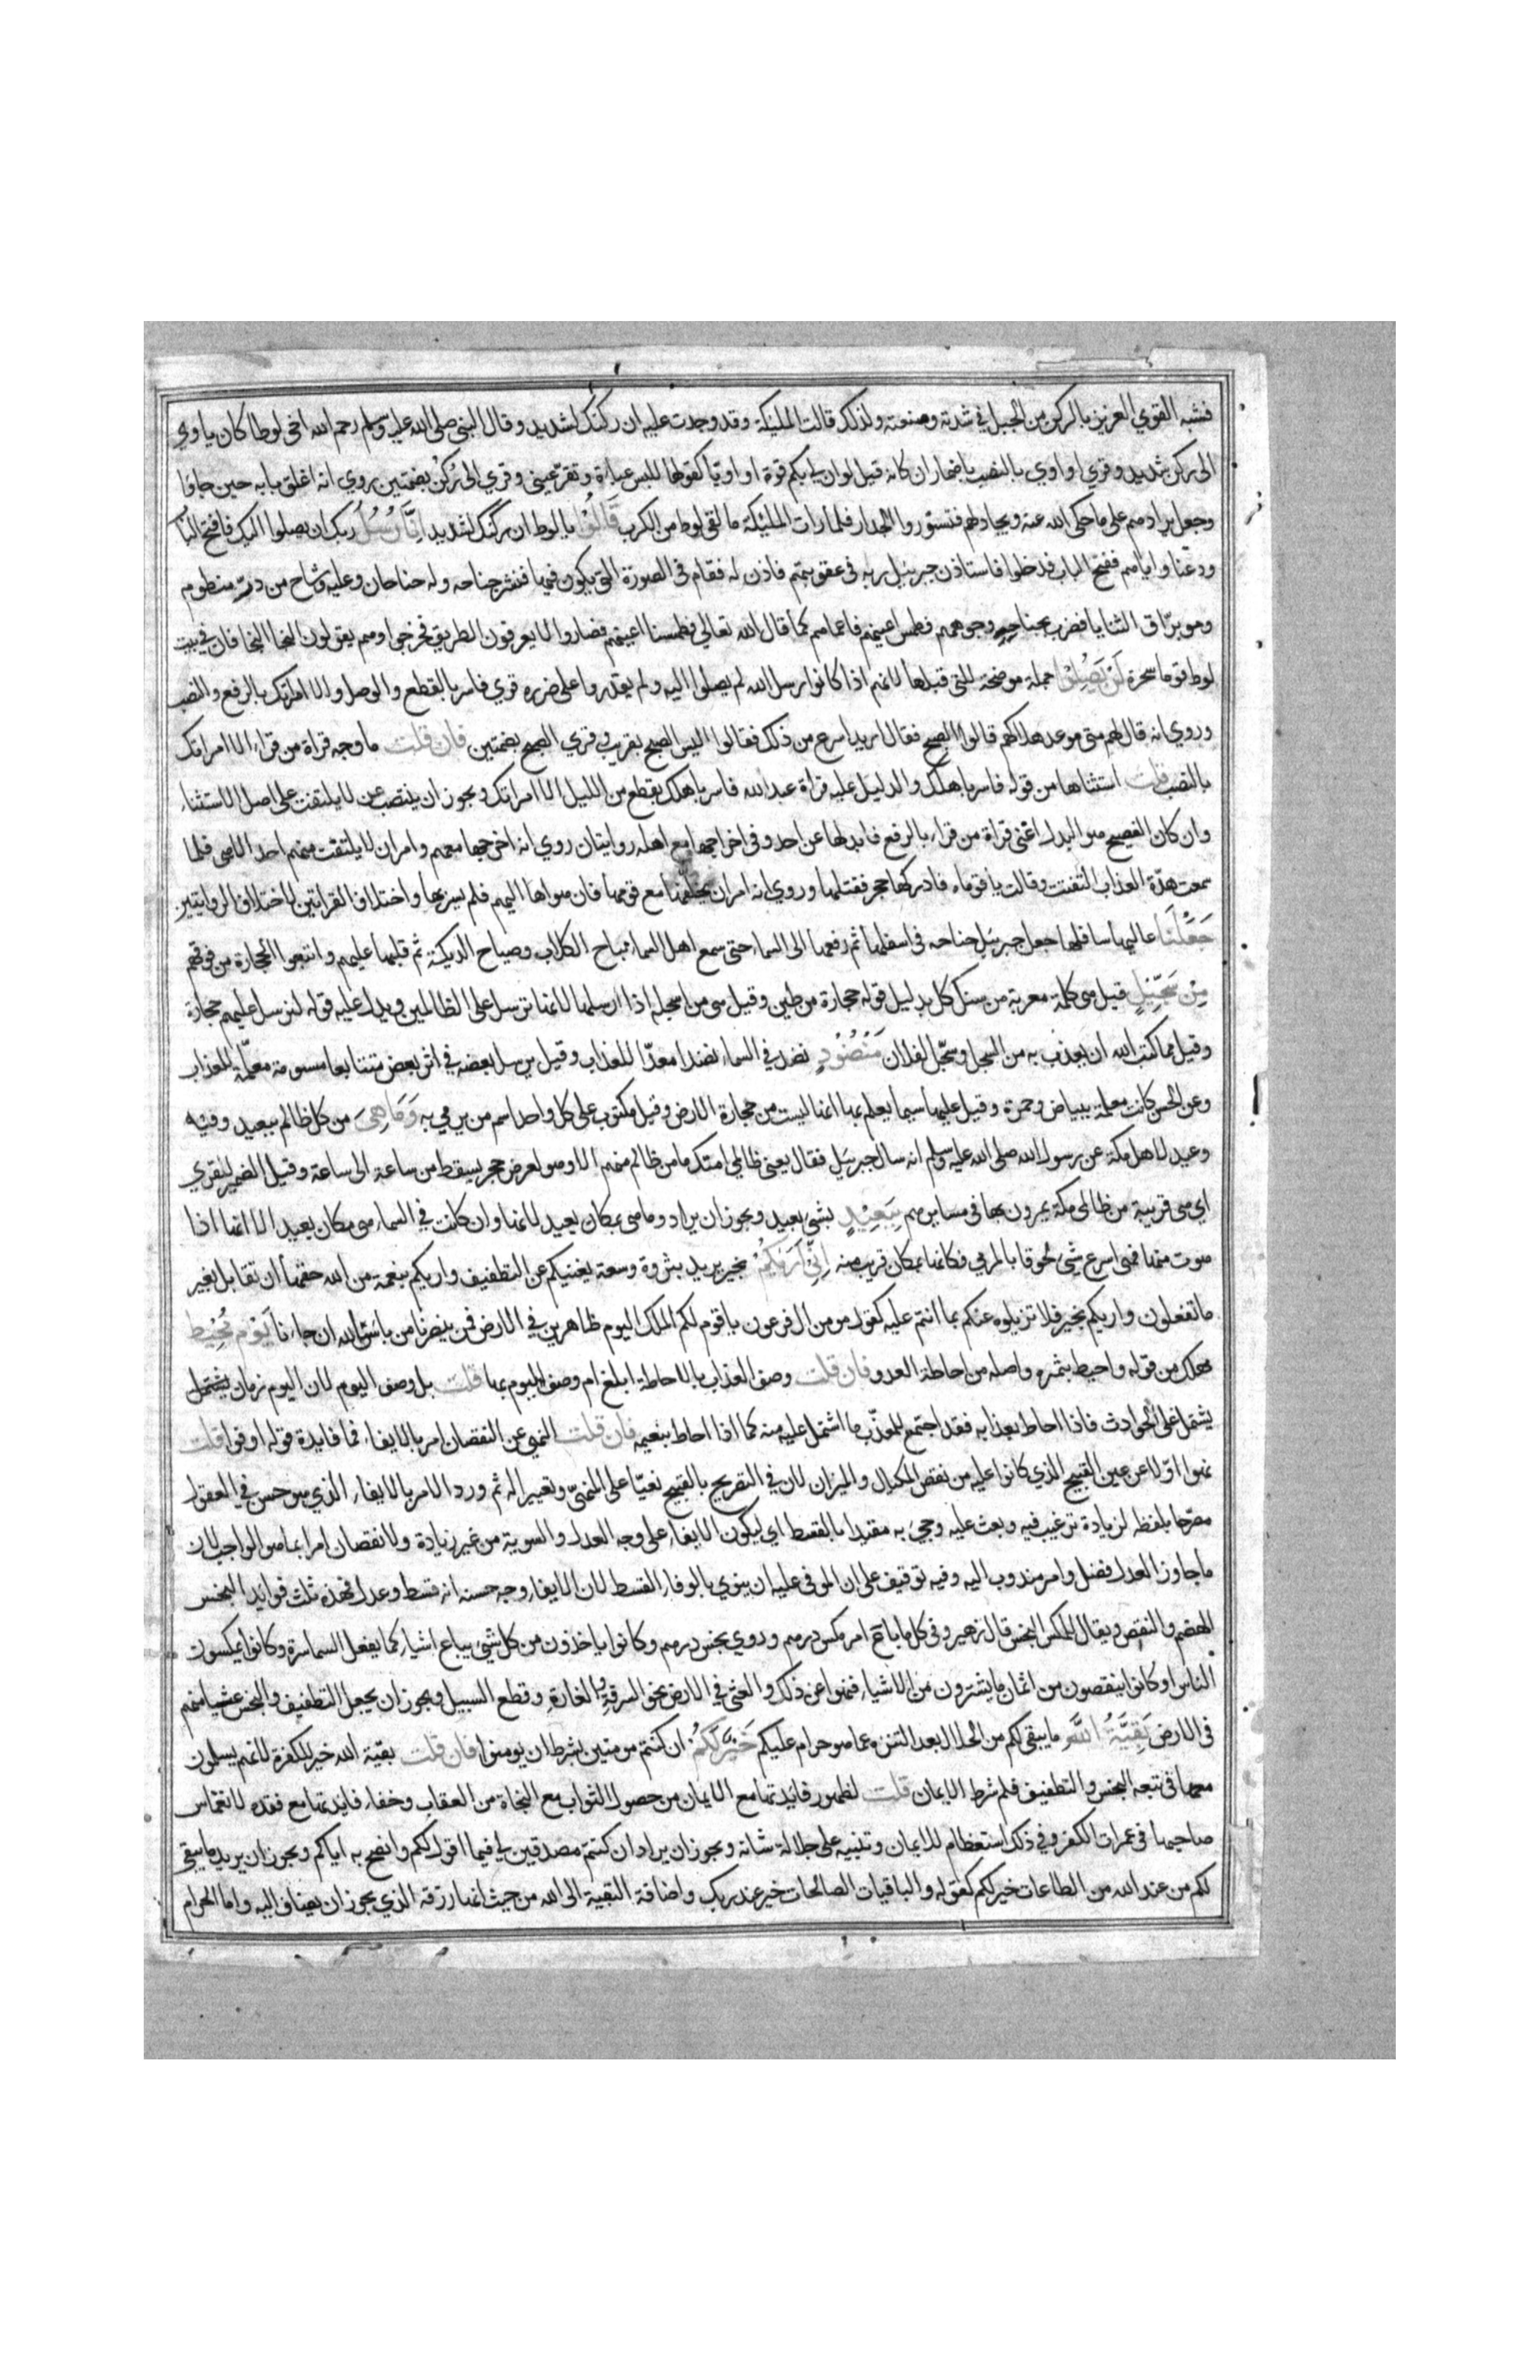 فشبه القوي العزيز بالركن من الجبل في شدته ومنعته ولذلك قالت المليكة وقد وجدت عليه ان ركنك لشديد وقال النبي صلى الله عليه وسلم رحم الله اخي لوطا كان ياوي
الى ركن شديد وقري او اوي بالنصب باضمار ان كانه قيل لو ان لي بكم قوة او اويا كقولها للبس عباءة وتقر عيني وقري الى رُكُن بضمتين روي انه اغلق بابه حين جاؤا
وجعل يرادهم على ما حكى الله عنه ويجادلهم فتسوروا الجدار فلما رات المليكة ما لقي لوط من الكرب قَالُوْا يا لوط ان ركنك لشديد اِنَّا رُسُلُ ربك لن يصلوا اليك فافتح الباب
ودعنا واياهم ففتح الباب فدخلوا فاستاذن جبرئيل ربه في عقوبتهم فاذن له فقام في الصورة التي يكون فيها فنشر جناحه وله جناحان وعليه وشاح من در منظوم
وهو براق الثنايا فضرب بجناحيه وجوههم فطمس اعينهم فاعماهم كما قال الله تعالي فطمسنا اعينهم فصاروا لا يعرفون الطريق فخرجوا وهم يقولون النجا النجا فان في بيت
لوط قوما سحرة لَنْ يَصِلُوْا جملة موضحة للتي قبلها لانهم اذا كانوا رسل الله لم يصلوا اليه ولم يقدروا على ضرره قري فاسر بالقطع والوصل والا امراتك بالرفع والنصب
وروي انه قال لهم متى موعد هلاكهم قالوا الصبح فقال اريد اسرع من ذلك فقالوا اليس الصبح بقريب وقري الصبح بضمتين فان قلت ما وجه قراة من قرا الا امراتك
بالنصب قلت استثناها من قوله فاسر باهلك والدليل عليه قراة عبد الله فاسر باهلك بقطع من الليل الا امراتك ويجوز ان ينتصب عن لا يلتفت على اصل الاستثناء
وان كان الفصيح هو البدل اعني قراة من قراء بالرفع فابدلها عن احد وفي اخراجها مع اهله روايتان روي انه اخرجها معهم وامر ان لا يلتفت منهم احد الا هي فلما
سمعت هدة العذاب التفتت وقالت يا قوماه فادركها حجر فقتلها وروي انه امر ان يخلفها مع قومها فان هواها اليهم فلم يسر بها واختلاف القراتين لاختلاف الروايتين
جَعَلْنَا عاليها سافلها جعل جبرئيل جناحه في اسفلها ثم رفعها الى السماء حتى سمع اهل السماء نباح الكلاب وصياح الديكة ثم قلبها عليهم واتبعوا الحجارة من فوقهم
مِنْ سِجِّيْلٍ قيل هي كلمة معربة من سنك كل بدليل قوله حجارة من طين وقيل هي من اسجله اذا ارسله لانها ترسل على الظالمين ويدل عليه قوله لنرسل عليهم حجارة
وقيل مما كتب الله ان يعذب به من السجل وسجل لفلان مَنْضُوْدٍ نضد في السماء نضدا معدا للعذاب وقيل يرسل بعضه في اثر بعض متتابعا مسومة معلمة للعذاب
وعن الحسن كانت معلمة ببياض وحمرة وقيل عليها سيما يعلم بها انها ليست من حجارة الارض وقيل مكتوب على كل واحد اسم من يرمي به وَمَا هِيَ من كل ظالم ببعيد وفيه
وعيد لاهل مكة عن رسول الله صلى الله عليه وسلم انه سال جبرئيل فقال يعني ظالمي امتك ما من ظالم منهم الا وهو لعرض حجر يسقط من ساعة الى ساعة وقيل الضمير للقري
اي هي قريبة من ظالمي مكة يمرون بها في مسايرهم بِبَعِيْدٍ بشئ بعيد ويجوز ان يراد وما هي بمكان بعيد لانها وان كانت في السماء هي مكان بعيد الا انها اذا
هوت منها فهي اسرع شئ لحوقا بالمرمي فكانها بمكان قريب منه اِنِّيْ اَرٰىكُمْ بخير يريد بثروة وسعة يغنيكم عن التطفيف واريكم بنعمة من الله حقها ان تقابل بغير
ما تفعلون واريكم بخير فلا تزيلوه عنكم بما انتم عليه كقول مومن ال فرعون يا قوم لكم الملك اليوم ظاهرين في الارض فمن ينصرنا من باس الله ان جاءنا يَوْمٍ مُّحِيْطٍ
مهلك من قوله واحيط بثمره واصله من احاطة العدو فان قلت وصف العذاب بالاحاطة ابلغ ام وصف اليوم بها قلت بل وصف اليوم لان اليوم زمان يشتمل
يشتمل على الحوادث فاذا احاط بعذابه فقد اجتمع للمعذب ما اشتمل عليه منه كما اذا احاط بنعيمه فان قلت النهي عن النقصان امر بالايفاء فما فايدة قوله اوفوا قلت
نهوا اولا عن عين القبيح الذي كانوا عليه من نقص المكيال والميزان لان في التصريح بالقبيح نعيا على المنهي وتعييرا له ثم ورد الامر بالايفاء الذي هو حسن في العقول
مصرحا بلفظه لزيادة ترغيب فيه وبعث عليه وجئ به مقيدا بالقسط اي ليكون الايفاء على وجه العدل والسوية من غير زيادة ولا نقصان امرا بما هو الواجب لان
ما جاوز العدل فضل وامر مندوب اليه وفيه توقيف على ان الموفي عليه ان ينوي بالوفاء القسط لان الايفاء وجه حسنه انه قسط وعدل فهذه ثلث فوايد البخس
الهضم والنقص ويقال للمكس البخس قال زهير وفي كل ما باع امر مكس درهم وروي بخس درهم وكانوا ياخذون من كل شئ يباع اشياء كما يفعل السماسرة وكانوا يمكسون
الناس او كانوا ينقصون من اثمان ما يشترون من الاشياء فنهوا عن ذلك والعثي في الارض نحو السرقة والغارة وقطع السبيل ويجوز ان يجعل التطفيف والبخس عثيا منهم
في الارض بَقِيَّةُ اللّٰهِ ما يبقى لكم من الحلال بعد التنزه عما هو حرام عليكم خَيْرٌ لَّكُمْ ان كنتم مومنين بشرط ان يومنوا فان قلت بقية الله خير للكفرة لانهم يسلمون
معها في تبعة البخس والتطفيف فلم شرط الايمان قلت لظهور فايدتها مع الايمان من حصول الثواب مع النجاة من العقاب وخفاء فايدتها مع فقده لانغماس
صاحبها في غمرات الكفر وفي ذلك استعظام للايمان وتنبيه على جلالة شانه ويجوز ان يراد ان كنتم مصدقين لي فيما اقول لكم وانصح به اياكم ويجوز ان يريد ما يبقى
لكم من عند الله من الطاعات خير لكم كقوله والباقيات الصالحات خير عند ربك واضافة البقية الى الله من حيث انها رزقه الذي يجوز ان يضاف اليه واما الحرام